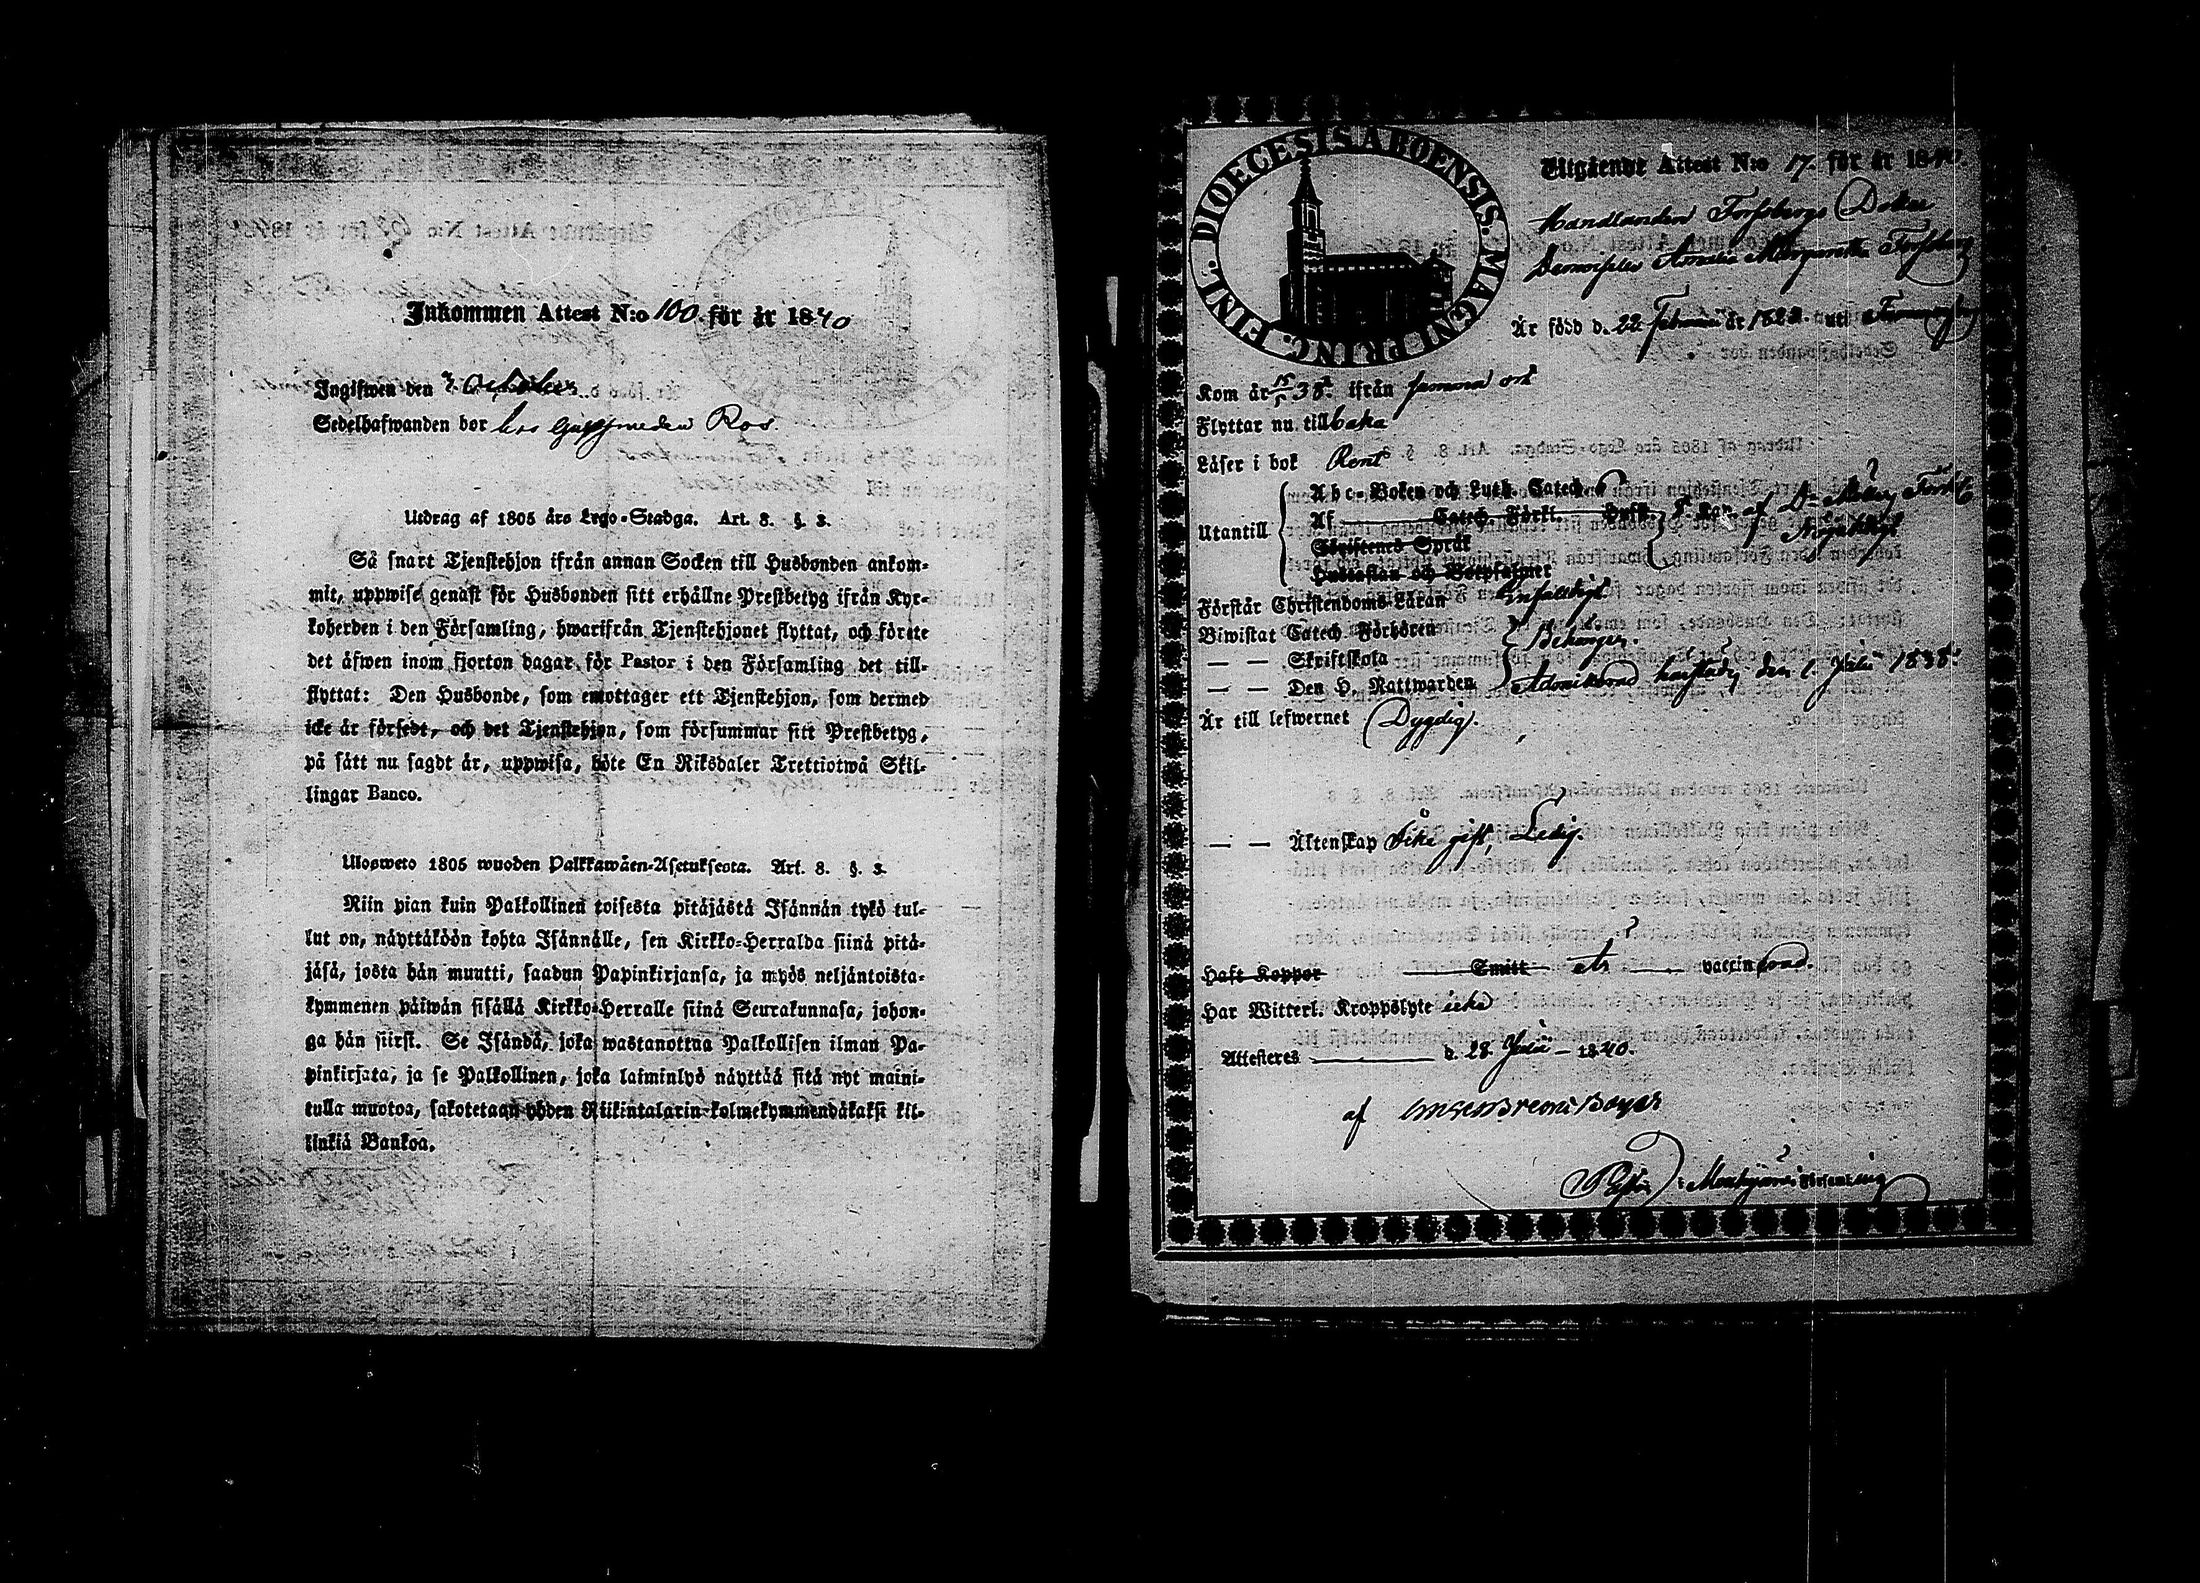 Inkommen Attest N:o 100 för år 1840
Ingifwen den 3 October
Sedelhafwanden bor hos Ros
Utdrag af 1805 års Lego-Stadga. Art. 8. §. 3.
Så snart Tjenstehjon ifrån annan Socken till Husbonden ankom-
mit, uppwise genast för Husbonden sitt erhållne Prestbetyg ifrån Kyr-
koherden i den Församling, hwarifrån Tjenstehjonet flyttat, och förete
det äfwen inom fjorton dagar för Pastor i den Församling det till-
flyttat: Den Husbonde, som emottager ett Tjenstehjon, som dermed
icke är försedt, och det Tjenstehjon, som försummar sitt Prestbetyg,
på sätt nu sagdt är, uppwisa, böte En Riksdaler Trettiotwå Skil-
lingar Banco.
Uloswеto 1805 wuoden Palkkawäen-Asetuksesta. Art. 8. §. 3.
Niin pian kuin Palkollinen toisesta pitäjästä Isännän tykö tul-
lut on, näyttäköön kohta Isännälle, sen Kirkko-Herralda siinä pitä-
jäsä, josta hän muutti, saadun Papinkirjansa, ja myös neljäntoista-
kymmenen päiwän sisällä Kirkko-Herralle siinä Seurakunnasa, johon-
ga hän siirsi. Se Isändä, joka wastanottaa Palkollisen ilman Pa-
pinkirjata, ja se Palkollinen, joka laiminlyö näyttää sitä nyt maini-
tulla muotoa, sakotetaan yhden Riikintalarin kolmekymmendäkaksi kil-
linkiä Bankoa.
FINL. DIOECESIS ABOENSIS. MAGNI PRINC.
Utgående Attest N:o 17 för år 1840.
Handlanden Forssbergs Doter
Demoiselle Amalia Margaretha Forssberg
Är född d. 22 Februari år 1822 uti
Kom år 15/5 38 ifrån samma ort
Flyttar nu tillbaka
Läser i bok Rent
Utantill
Abc-Boken och Luth. Catech.
Af Catech. Förkl. Hufst. 8 Kap. af D. Möllers Förkl.
Skriftenes Språk Nöjaktigt
Hustaflan och Botpsalmer
Förstår Christendoms Läran Enfaldigt
Biwistat Catech. Förhören Behörigen.
— — Skriftskola
— — Den H. Nattwarden Admitterad härstädes den 1. Julii 1838.
Är till lefwernet Dygdig.
— — Äktenskap Icke gift, Ledig.
Haft Koppor Smitt Är vaccinerad.
Har Witterl. Kroppslyte icke
Attesteras d. 28. Julii 1840.
af
Församling